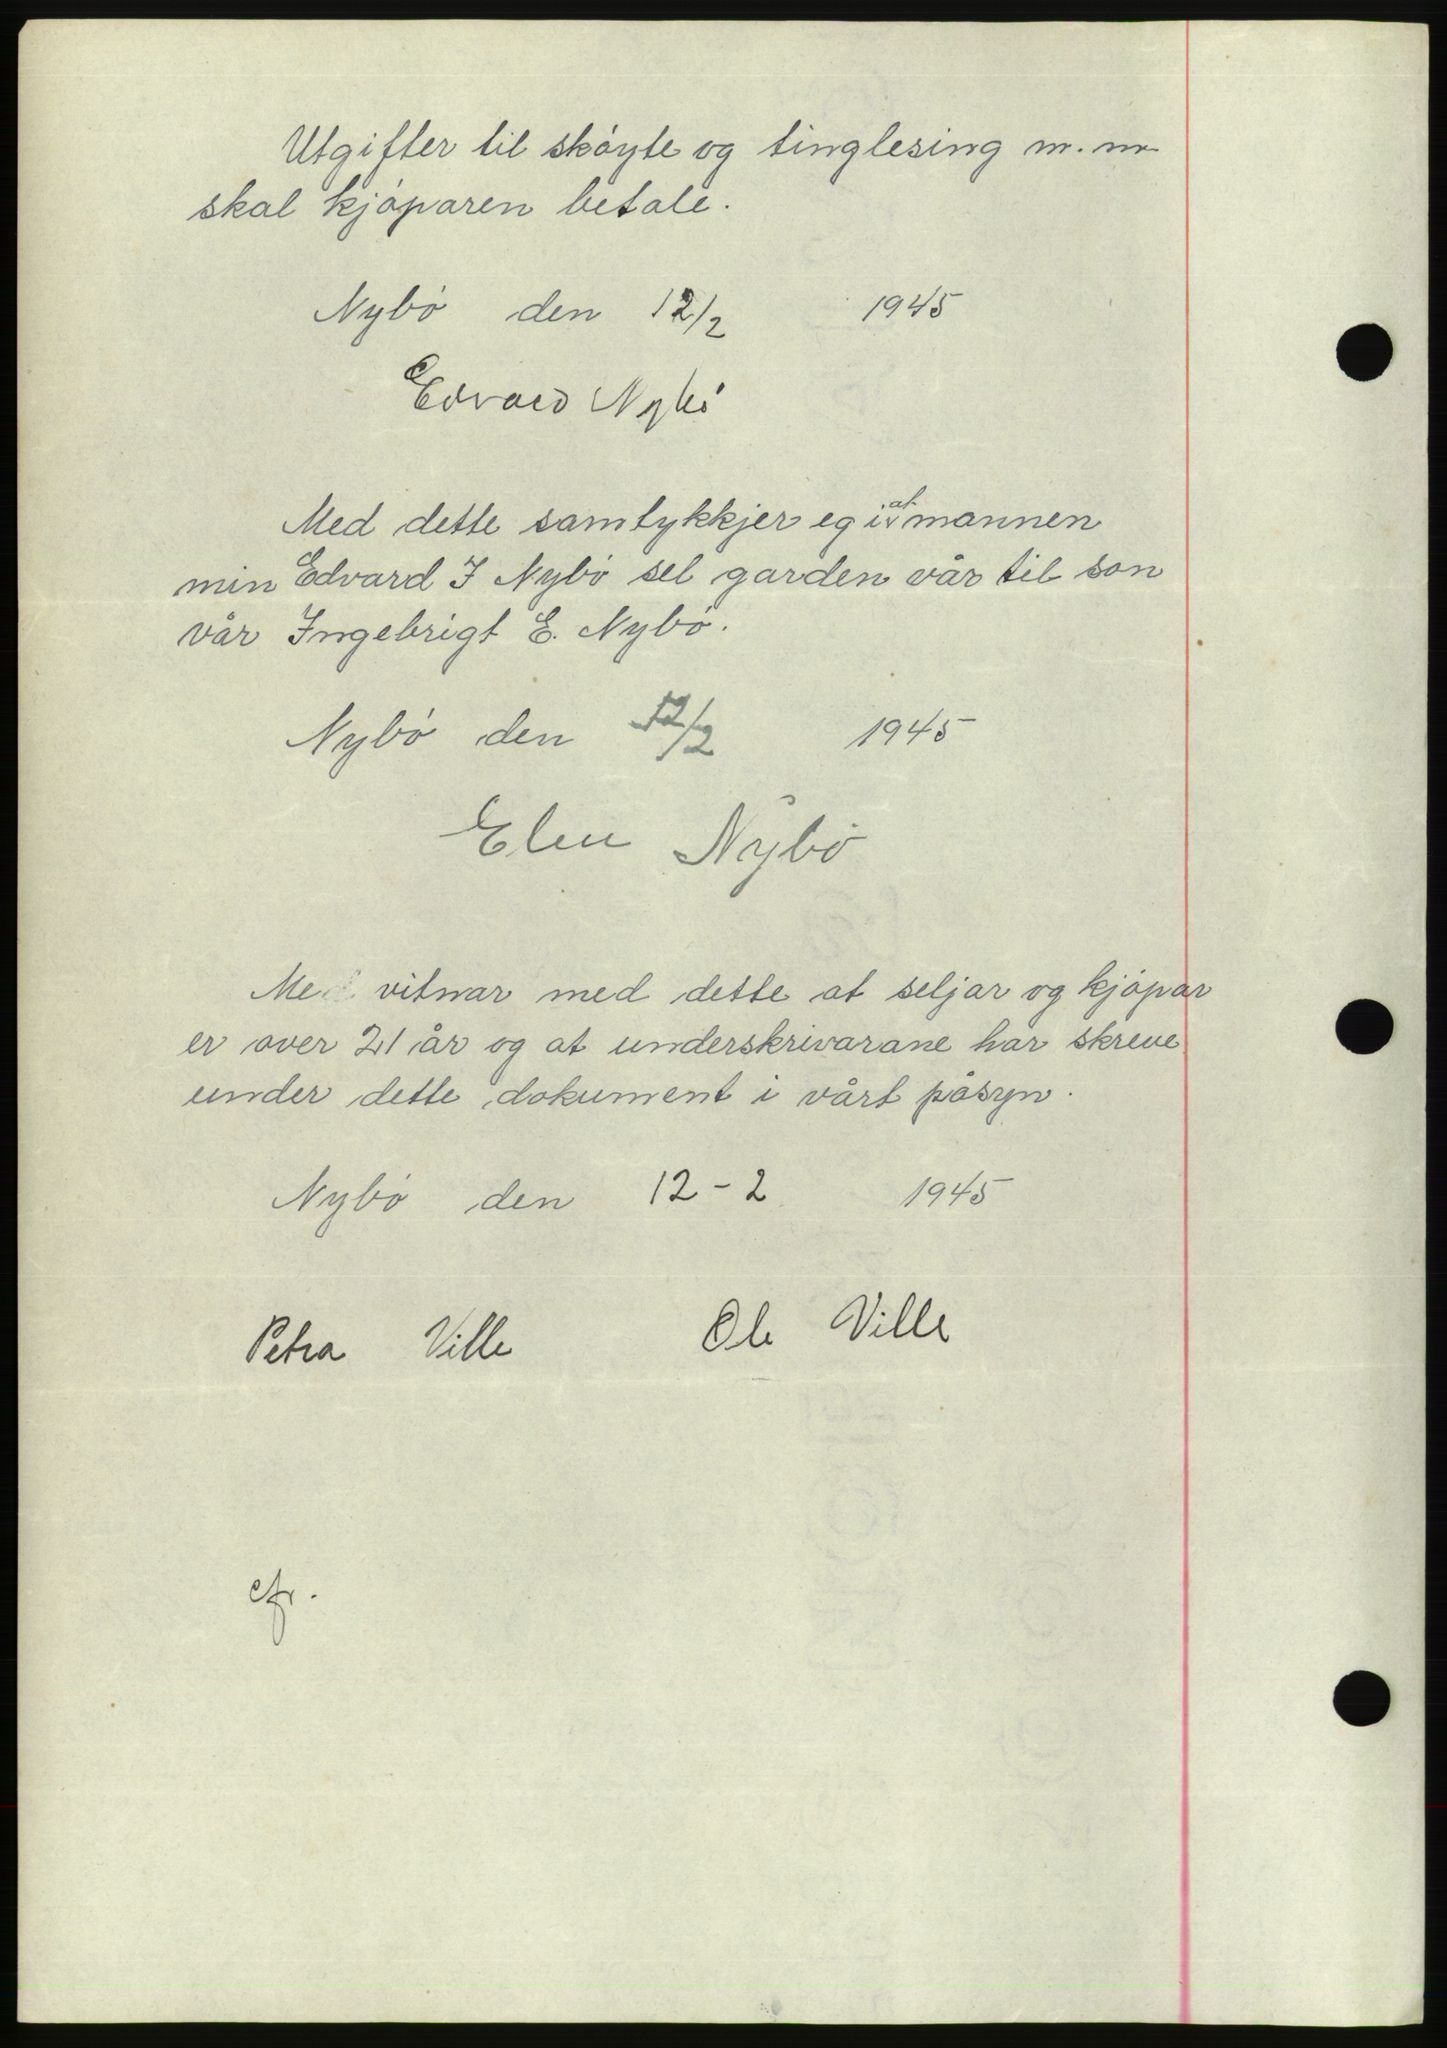 Utgifter til skøyte og tinglesing m. m.
skal kjøparen betale.
Nybø den 12/2 1945
Edvard Nybø
Med dette samtykkjer eg i at mannen
min Edvard I Nybø sel garden vår til son
vår Ingebrigt E. Nybø.
Nybø den 12/2 1945
Elen Nybø
Me vitnar med dette at seljar og kjøpar
er over 21 år og at underskrivarane har skreve
under dette dokument i vårt påsyn.
Nybø den 12-2 1945
Petra Ville Ole Ville
cfr.